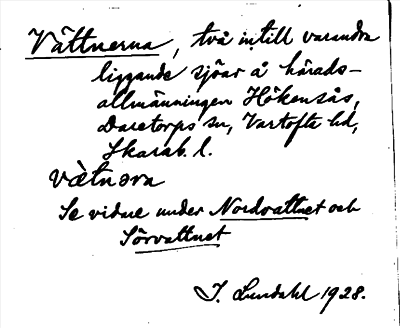 Vättnerna, två intill varandra
liggande sjöar å härads-
allmänningen Hökensås,
Daretorps sn, Vartofta hd,
Skarab. l.
vàtnəra
Se vidare under Nordvattnet och
Sörvattnet
J. Lundahl 1928.